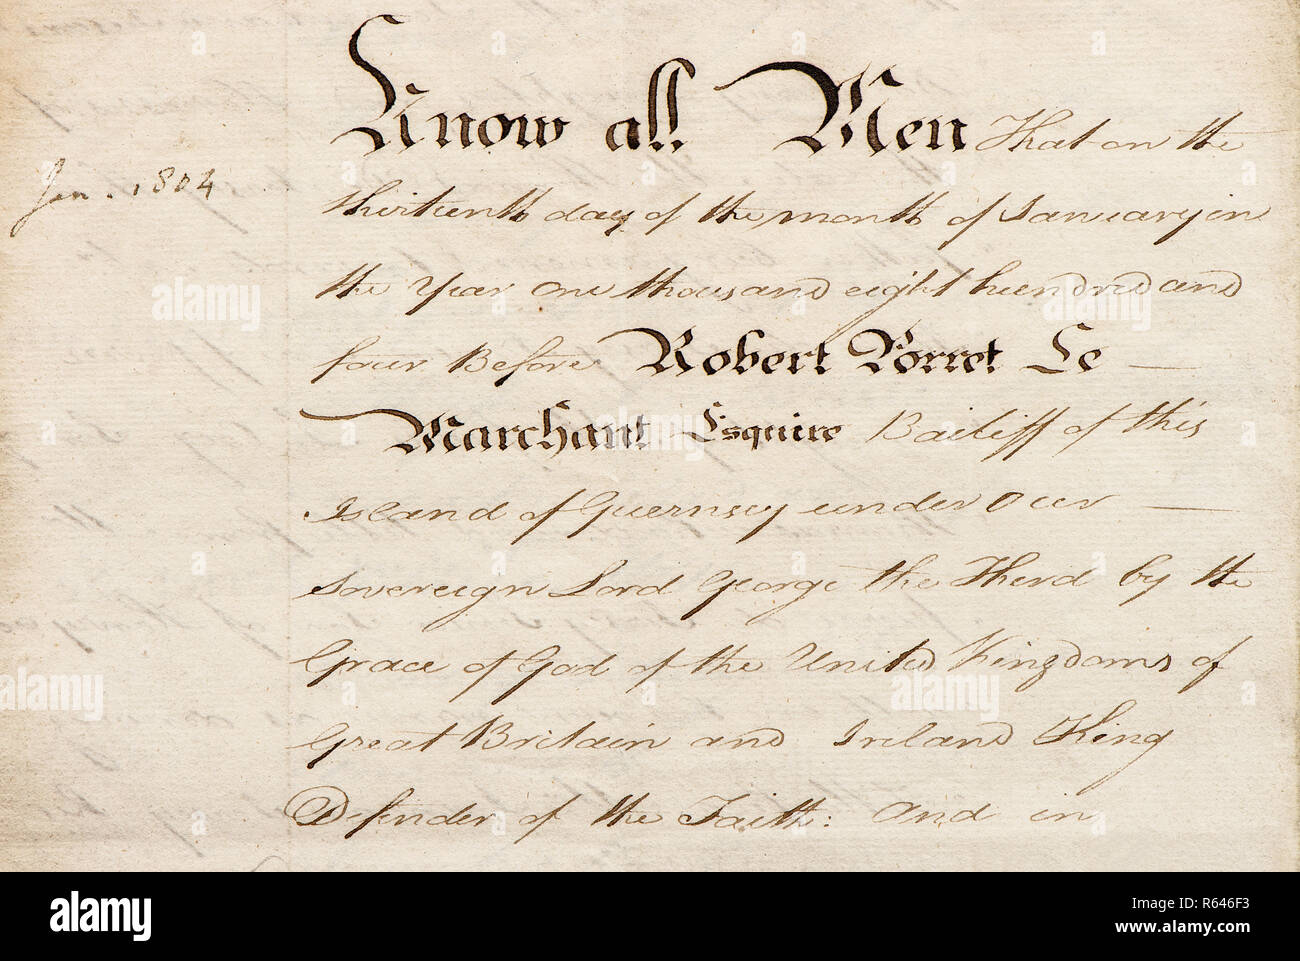 Know all Men That on the
Jan. 1804
thirteenth day of the month of January in
the Year One thousand eight hundred and
four Before Robert Porret Le
Marchant Esquire Bailiff of this
Island of Guernsey under Our
Sovereign Lord George the Therd by the
Grace of God of the United Kingdoms of
Great Britain and Ireland King
Defender of the Faith: And in
alamy
alamy
Image ID: R646F3
www.alamy.com